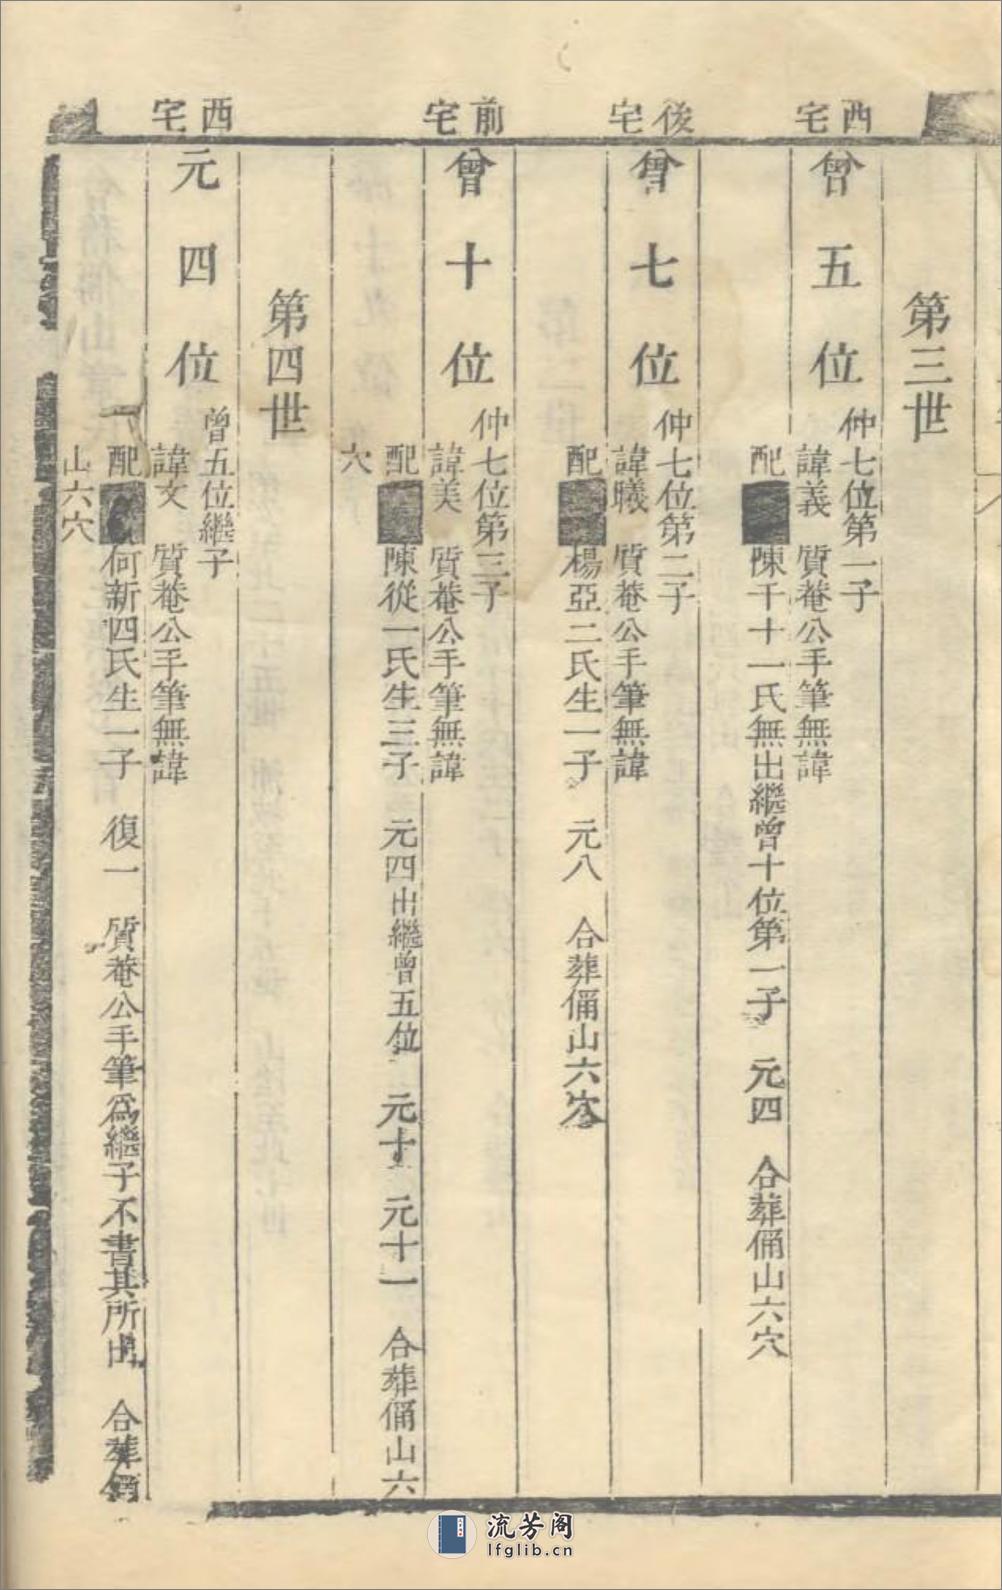 第三世
西宅
曾五位
仲七位第一子
諱義　質菴公手筆無諱
配　陳千十一氏無出繼曾十位第一子　元四　合葬俑山六穴
後宅
曾七位
仲七位第二子
諱曦　質菴公手筆無諱
配　楊亞二氏生一子　元八　合葬俑山六穴
前宅
曾十位
仲七位第三子
諱美　質菴公手筆無諱
配　陳從一氏生三子　元四出繼曾五位　元十　元十一　合葬俑山六
穴
第四世
西宅
元四位
曾五位繼子
諱文　質菴公手筆無諱
配　何新四氏生一子　復一　質菴公手筆爲繼子不書其所出　合葬俑
山六穴
流芳阁
lfglib.cn